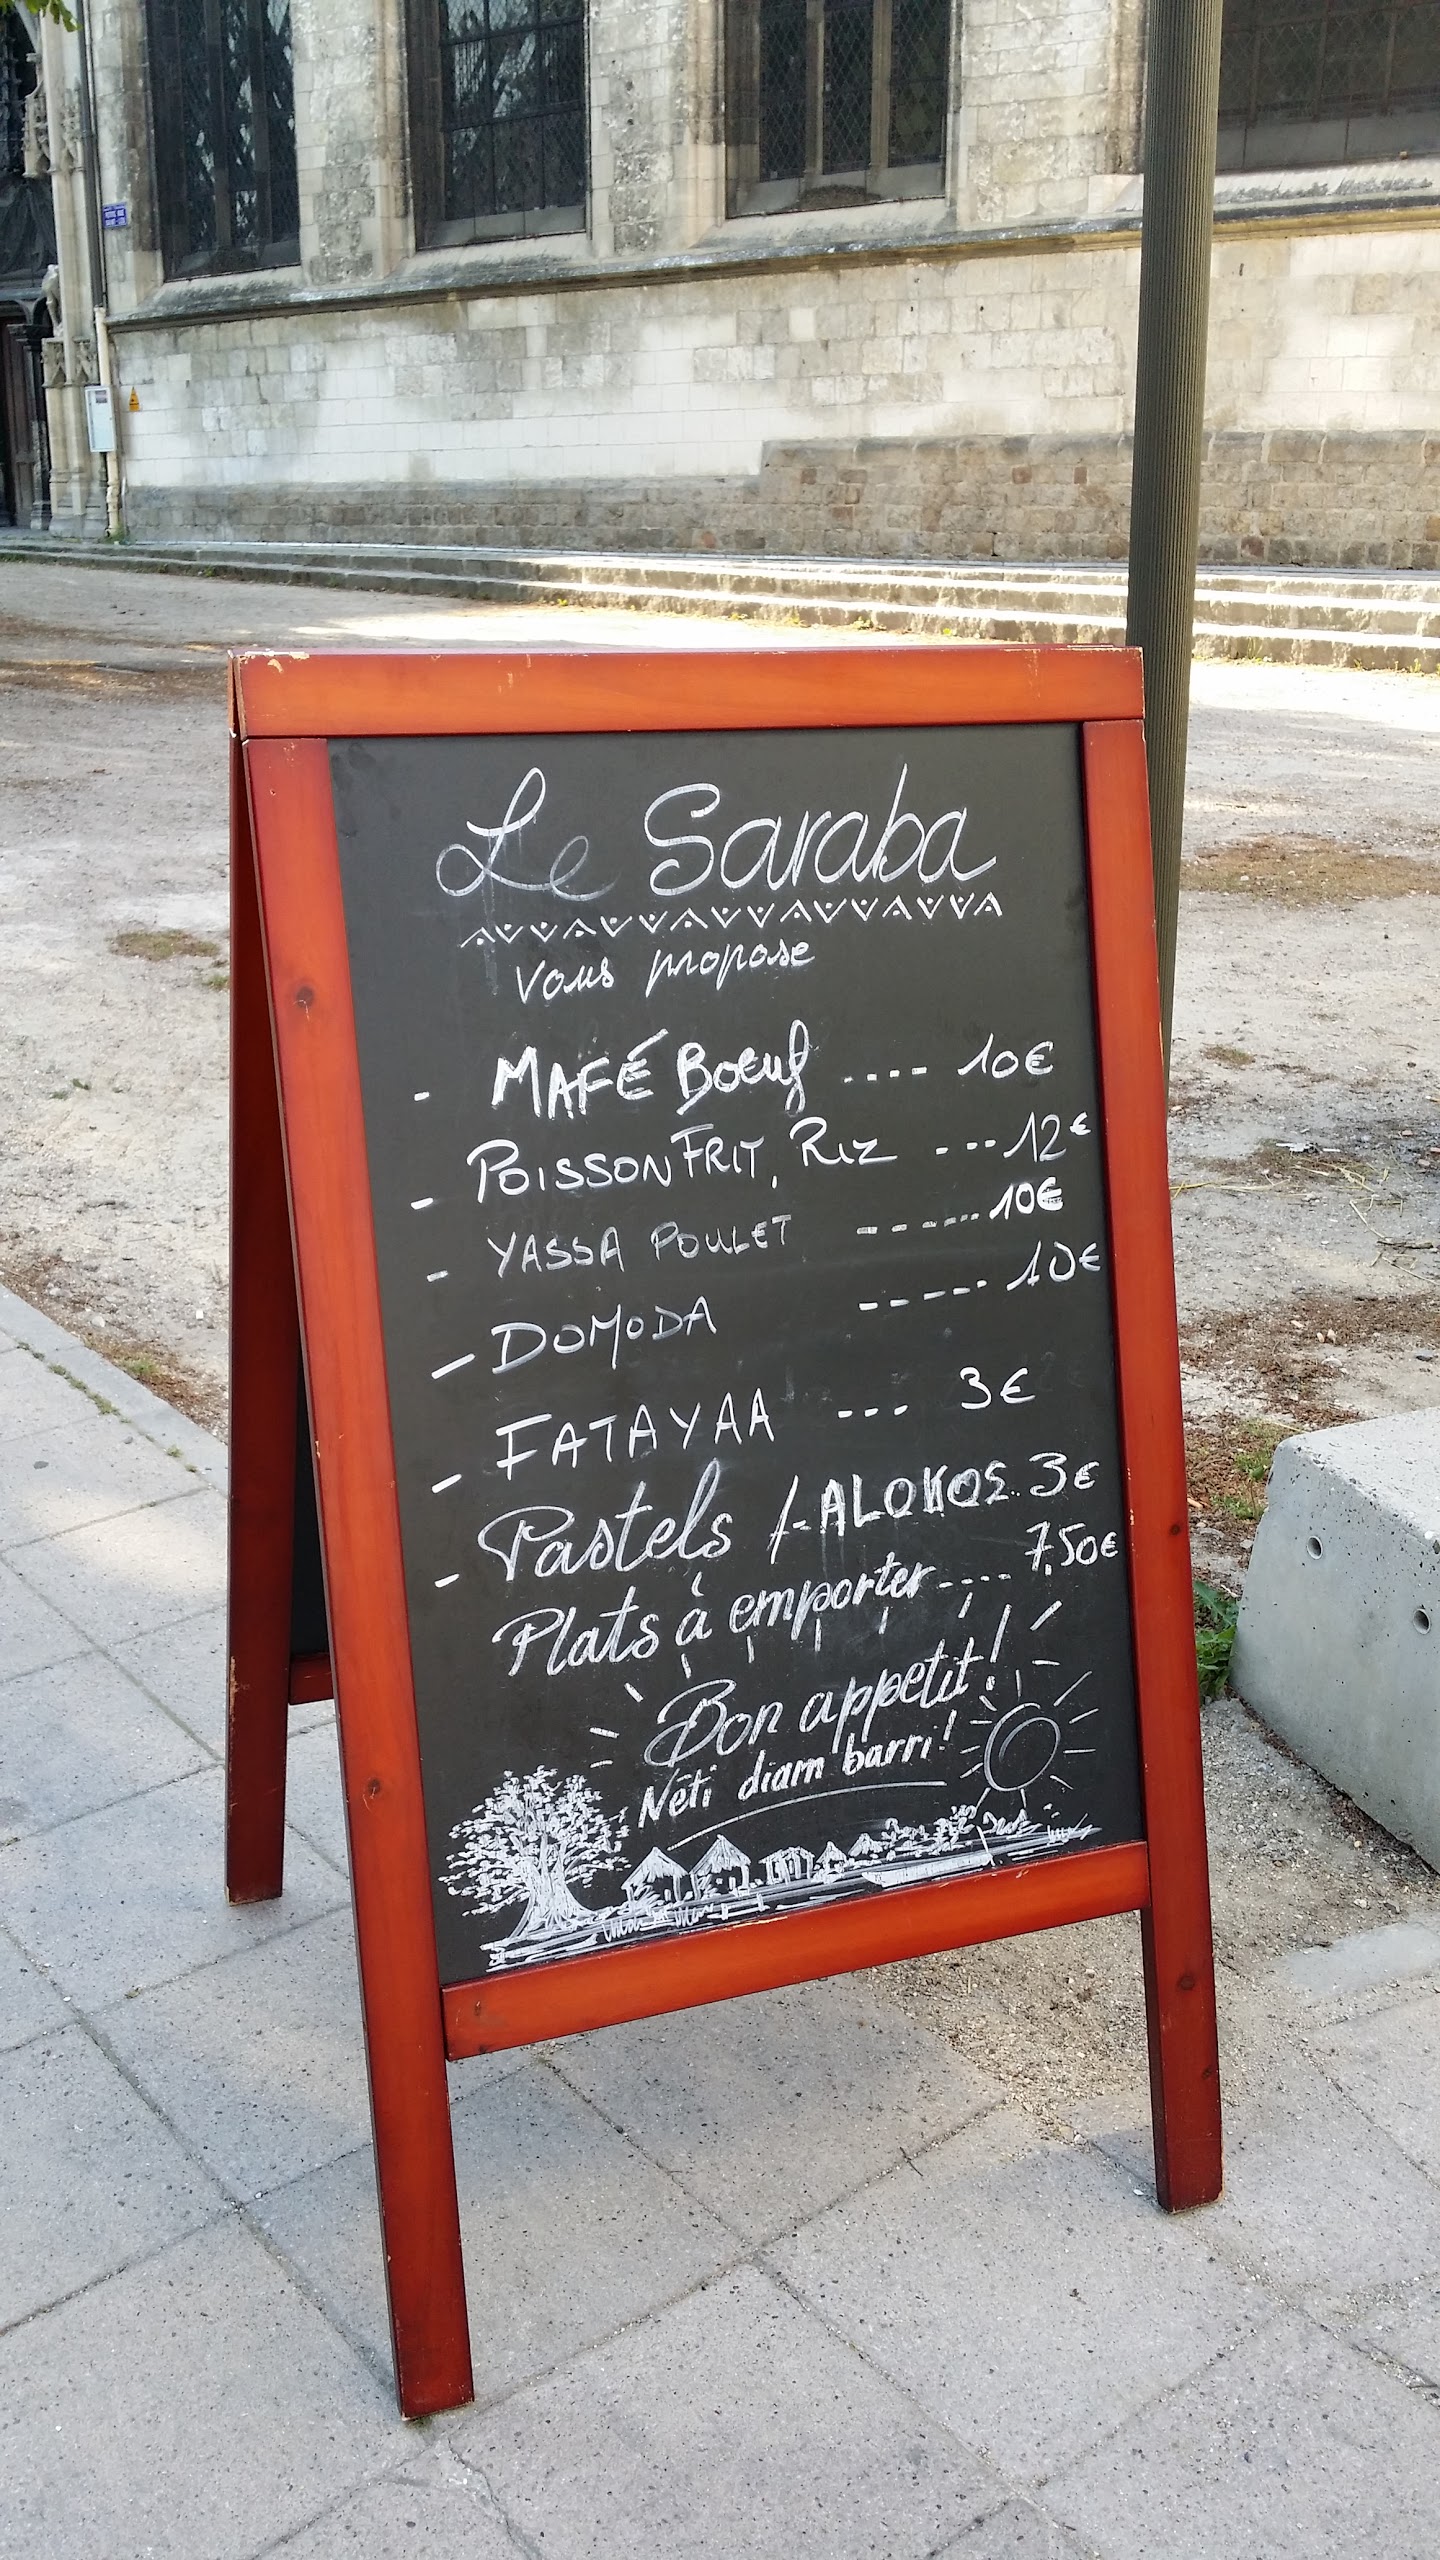 Le Saraba
vous propose
- MAFÉ Boeuf .... 10€
- POISSON FRIT, RIZ ... 12€
- YASSA POULET ------ 10€
- DOMODA ----- 10€
- FATAYAA --- 3€
- Pastels /-ALOKOS.. 3€
Plats à emporter.... 7,50€
Bon appetit!
Nēti diam barri!